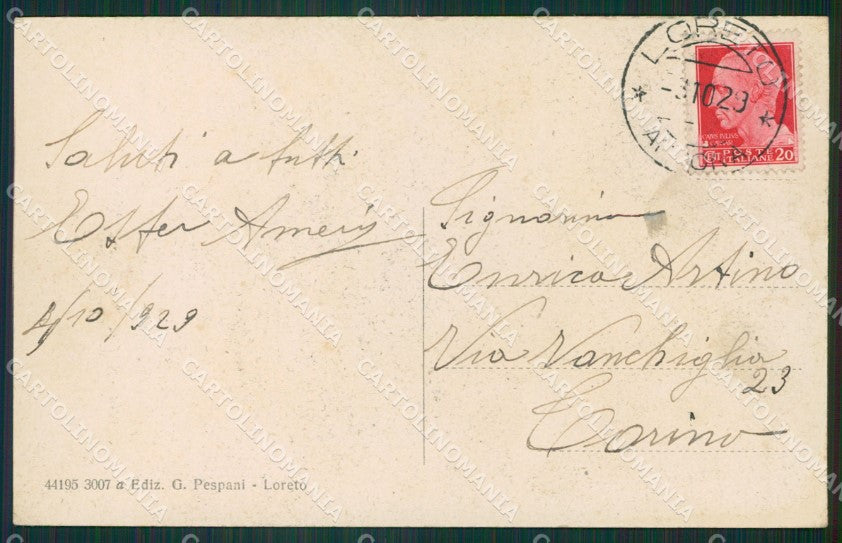 LORETO
-3 10 29
POSTE
ITALIANE 20
Saluti a tutti
Ester
4/10/929
Signorina
Enrica Artino
Via Vanchiglia
23
Torino
44195 3007 a Ediz. G. Pespani - Loreto
CARTOLINOMANIA